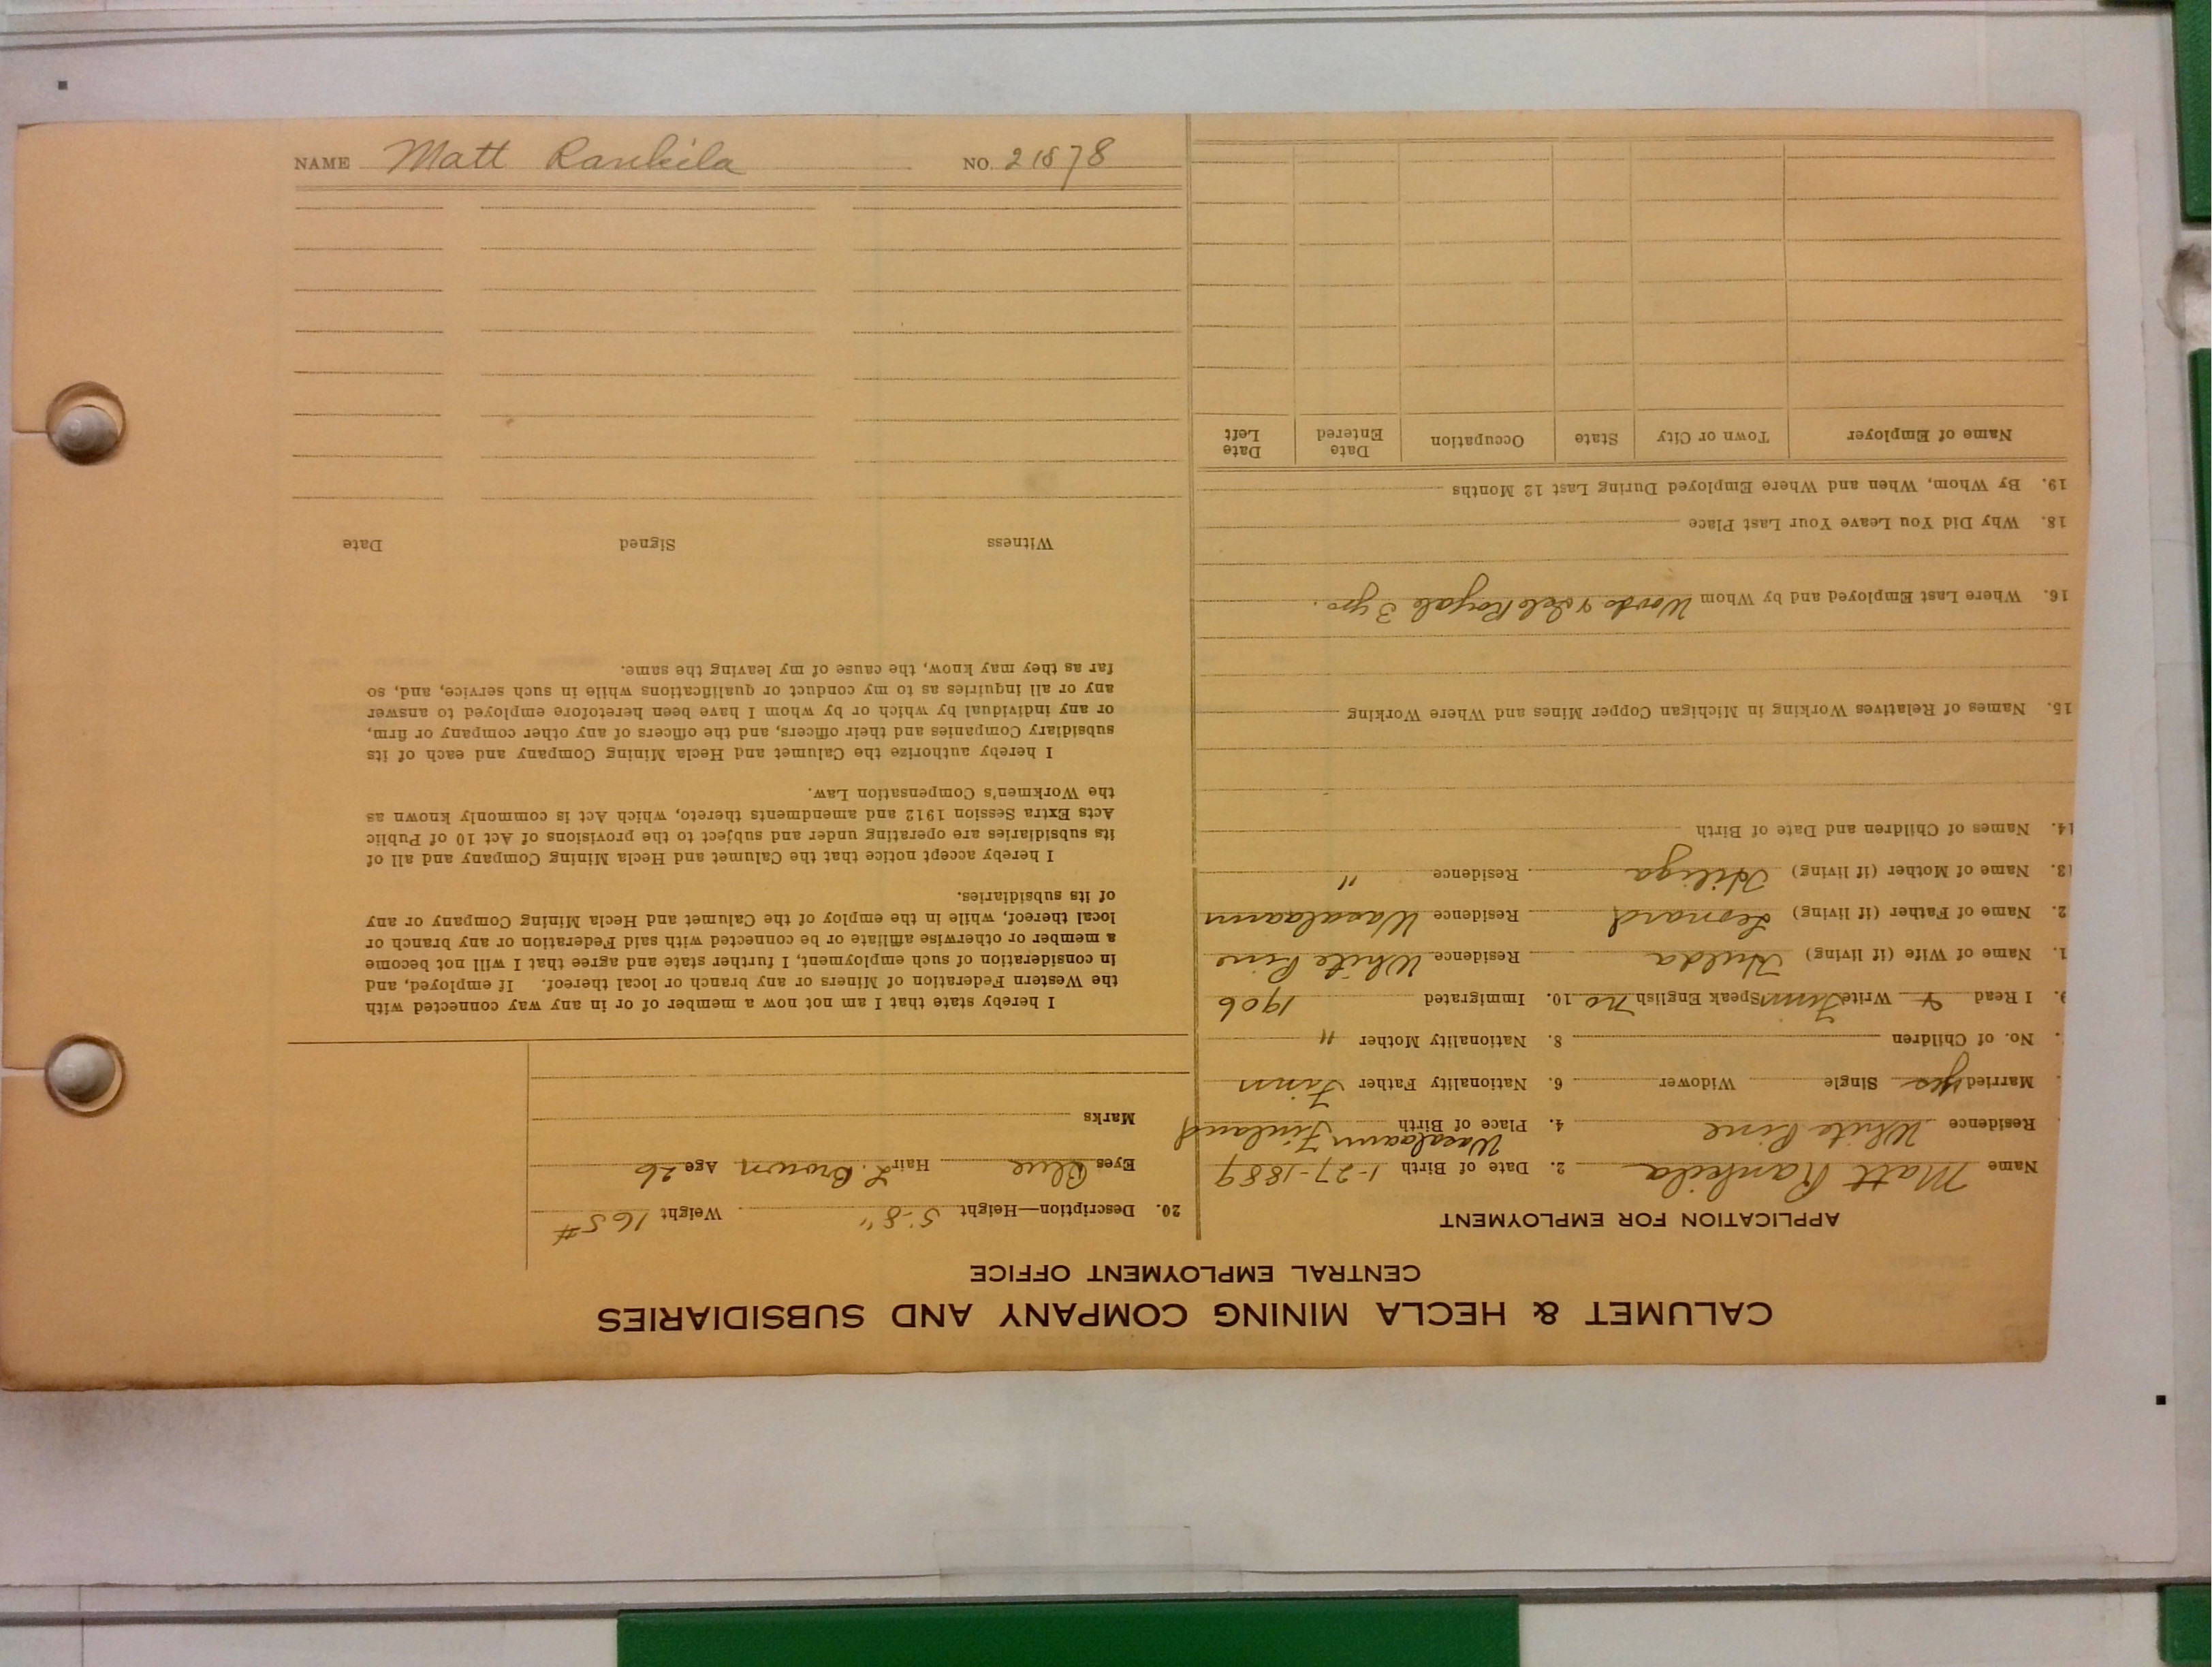 NAME Matt Rankila NO. 21878
CALUMET & HECLA MINING COMPANY AND SUBSIDIARIES
CENTRAL EMPLOYMENT OFFICE
APPLICATION FOR EMPLOYMENT
Name Matt Rankila 2. Date of Birth 1-27-1889
Residence White Pine 4. Place of Birth Wasalaani Finland
Married yes Single Widower 6. Nationality Father Finn
No. of Children 8. Nationality Mother "
9. I Read & Write Finn Speak English no 10. Immigrated 1906
1. Name of Wife (if living) Hulda Residence White Pine
2. Name of Father (if living) Leonard Residence Wasalaani
13. Name of Mother (if living) Residence "
14. Names of Children and Date of Birth
15. Names of Relatives Working in Michigan Copper Mines and Where Working
16. Where Last Employed and by Whom Woods & Isle Royale 3 yrs.
18. Why Did You Leave Your Last Place
19. By Whom, When and Where Employed During Last 12 Months
Name of Employer Town or City State Occupation Date Entered Date Left
20. Description—Height 5-8" Weight 165#
Eyes Blue Hair L. Brown Age 26
Marks
I hereby state that I am not now a member of or in any way connected with
the Western Federation of Miners or any branch or local thereof. If employed, and
in consideration of such employment, I further state and agree that I will not become
a member or otherwise affiliate or be connected with said Federation or any branch or
local thereof, while in the employ of the Calumet and Hecla Mining Company or any
of its subsidiaries.
I hereby accept notice that the Calumet and Hecla Mining Company and all of
its subsidiaries are operating under and subject to the provisions of Act 10 of Public
Acts Extra Session 1912 and amendments thereto, which Act is commonly known as
the Workmen's Compensation Law.
I hereby authorize the Calumet and Hecla Mining Company and each of its
subsidiary Companies and their officers, and the officers of any other company or firm,
or any individual by which or by whom I have been heretofore employed to answer
any or all inquiries as to my conduct or qualifications while in such service, and, so
far as they may know, the cause of my leaving the same.
Witness Signed Date